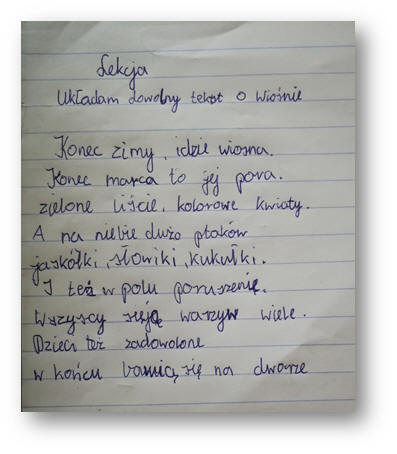 Lekcja
Układam dowolny tekst o wiośnie
Konec zimy, idzie wiosna.
Konec marca to jej pora.
zielone liście, kolorowe kwiaty.
A na niebie dużo ptaków
jaskółki, słowiki, kukułki.
I też w polu poruszenie.
Wszyscy sieją warzyw wiele.
Dzieci też zadowolone
w końcu bawią się na dworze